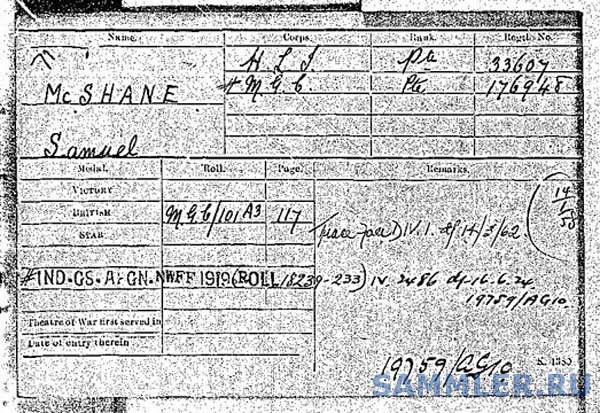 Name. Corps. Rank. Regtl. No.
H. L. I. Pte 33607
McSHANE # M. G. C. Pte 176948
Samuel
Medal. Roll. Page. Remarks.
VICTORY
BRITISH M.G.C/101 A3 117
STAR
14/1/58
#IND.GS. AFGN. NWFF 1919 (ROLL 18239-233) IV. 2486 df 16.6.24.
19759/AG10.
Theatre of War first served in
Date of entry therein
19759/AG10 K. 1380
SAMMLER.RU